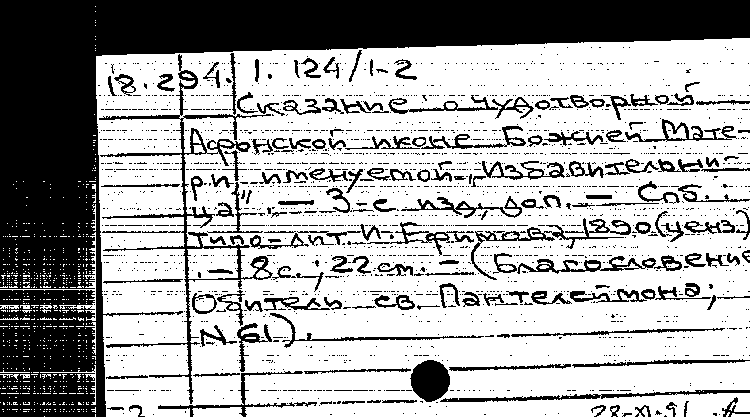 18.294. 1. 124/1-2
Сказание о чудотворной
Афонской иконе Божией Мате-
ри, именуемой „Избавительни-
ца". — 3-е изд., доп. — Спб. :
типо-лит. И. Ефимова, 1890 (ценз.)
. — 8 с. ; 22 см. — (Благословение
Обители св. Пантелеймона;
N 61).
28-XI-91